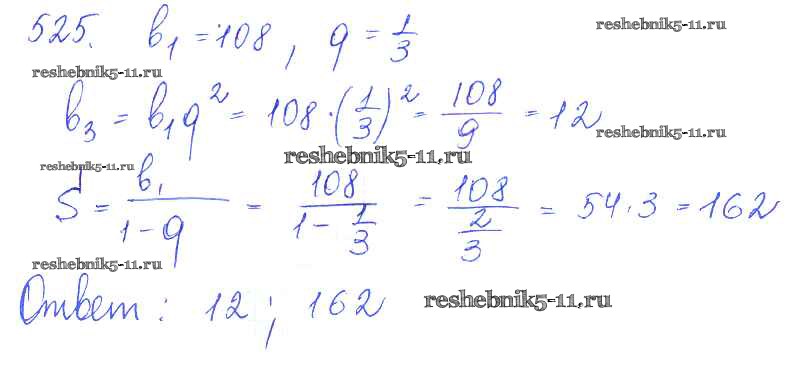 525. b₁ = 108, q = 1/3
reshebnik5-11.ru
reshebnik5-11.ru
b₃ = b₁q² = 108·(1/3)² = 108/9 = 12
reshebnik5-11.ru
reshebnik5-11.ru
reshebnik5-11.ru
S = b₁/(1-q) = 108/(1-1/3) = 108/(2/3) = 54·3 = 162
reshebnik5-11.ru
Ответ: 12; 162
reshebnik5-11.ru